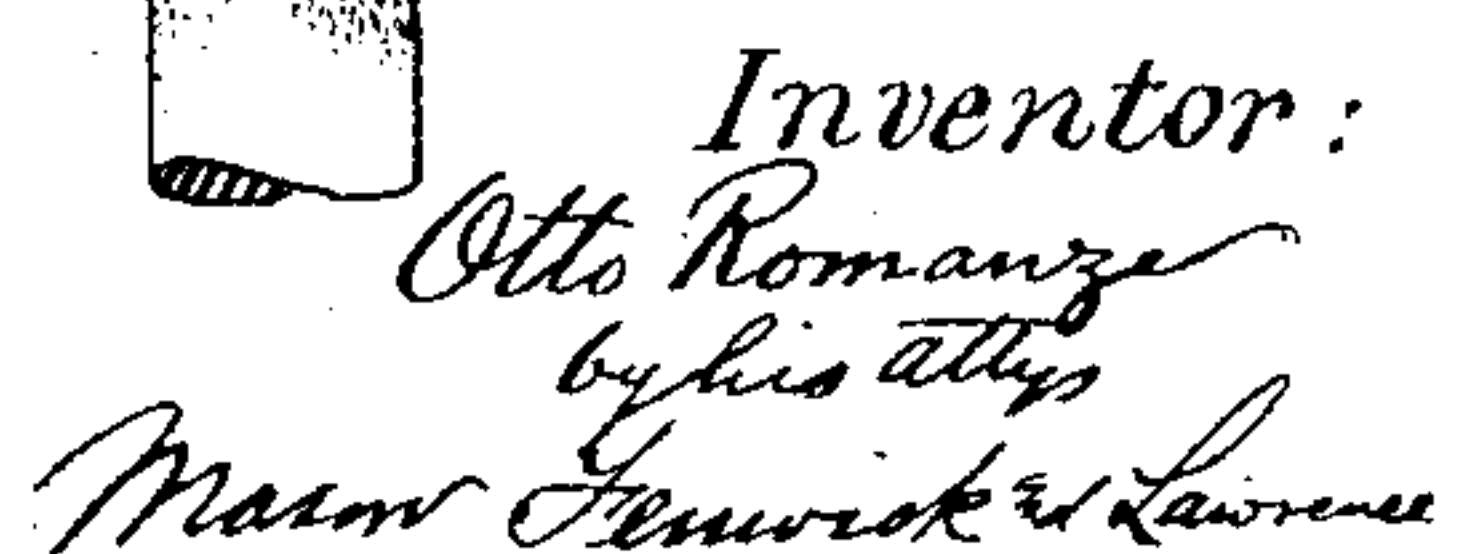 Inventor:
Otto Romanze
by his attys
Mason Fenwick and Lawrence